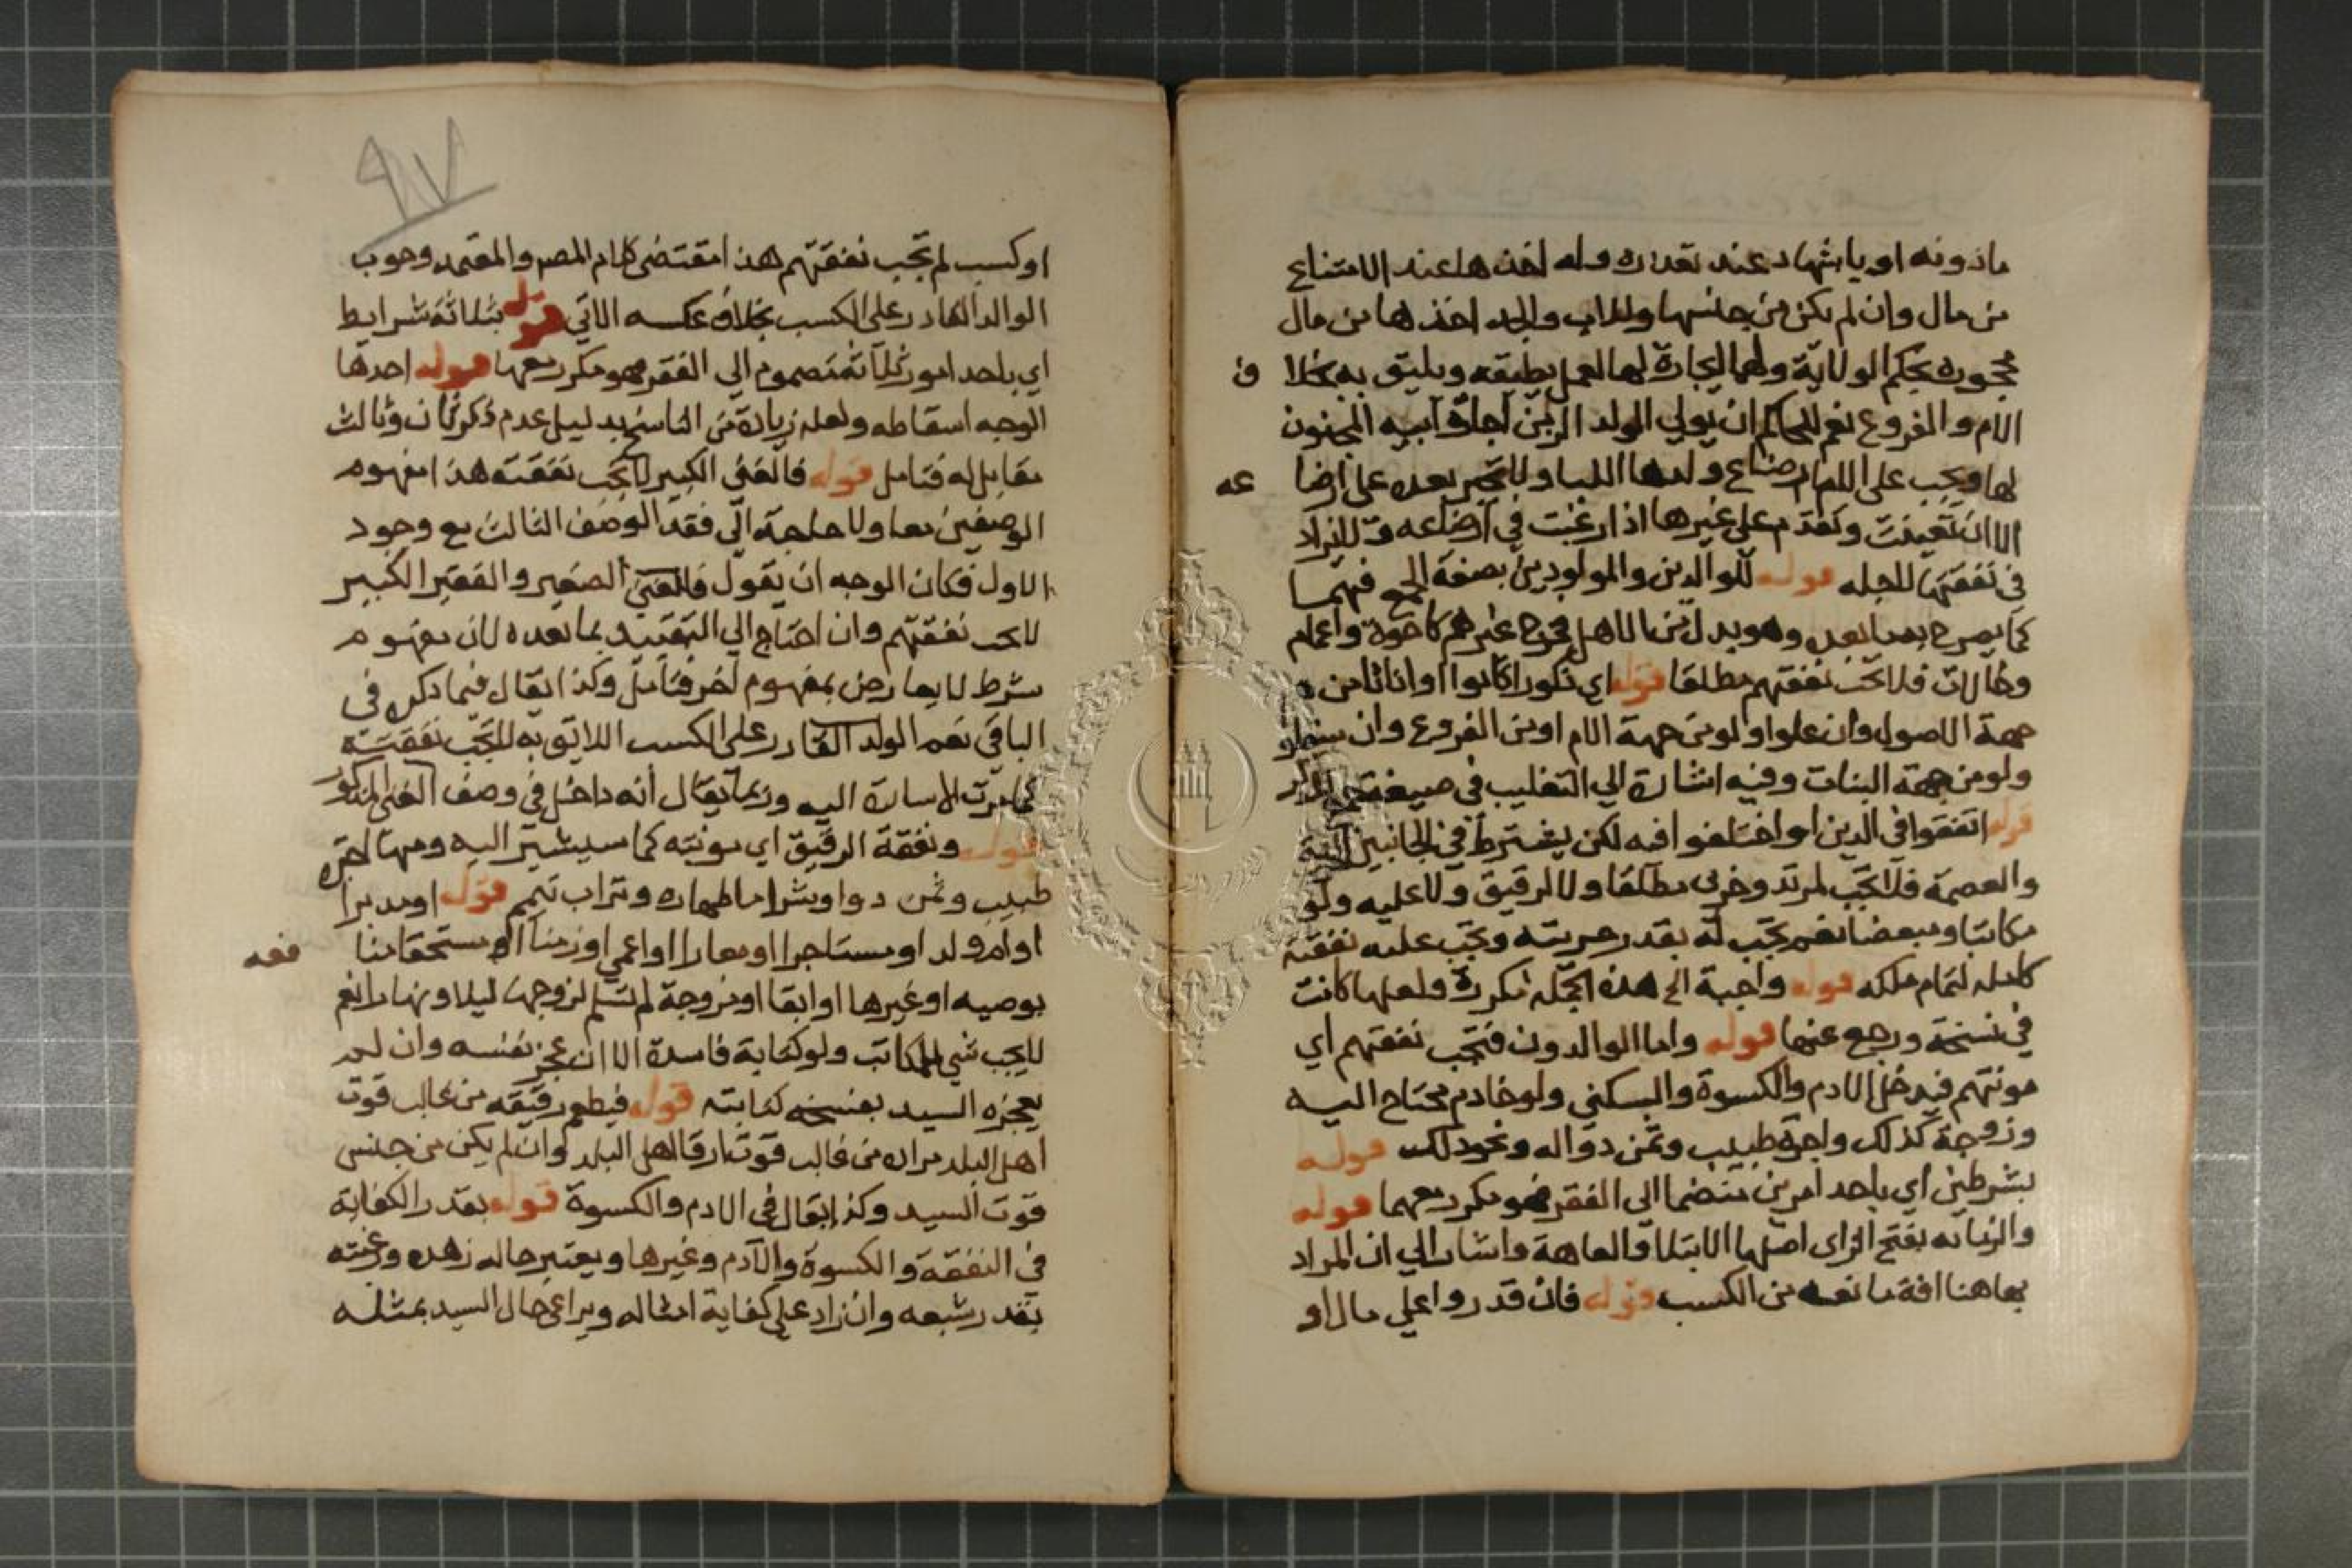 ماذونه او باشهاد عند تعذره وله اخذها عند الامتناع
من مال وان لم يكن من جنسها وللاب والجد اخذها من مال
محجوره بحكم الولاية ولهما ايجاره لها لعمل يطيقه ويليق به بخلا ف
الام والفروع نعم للحاكم ان يولي الولد الزمن اجارة ابيه المجنون
لها ويجب على الام ارضاع ولدها اللبا ولا تجبر بعده على ارضا عه
الا ان تعينت وتقدم على غيرها اذا رغبت في ارضاعه ولا يزاد
في نفقتها لاجله قوله للوالدين والمولودين بصفة الجمع فيهما
كما يصرح به ما بعده وهو بدل من الاهل فخرج غيرهم كاخوة واعمام
وخالات فلا تجب نفقتهم مطلقا قوله اي ذكورا كانوا او اناثا من
جهة الاصول وان علوا ولو من جهة الام او من الفروع وان سفلو
ولو من جهة البنات وفيه اشارة الي التغليب في صيغة جمع المذكر
قوله اتفقوا في الدين او اختلفوا فيه لكن يشترط في الجانبين الحرية
والعصمة فلا تجب لمرتد وحربي مطلقا ولا لرقيق ولا عليه ولو
مكاتبا ومبعضا نعم تجب له بقدر حريته وتجب عليه نفقة
كاملة لتمام ملكه قوله واجبة الخ هذه الجملة مكررة ولعلها كانت
في نسخة ورجع عنها قوله واما الوالدون فتجب نفقتهم اي
مونتهم فيدخل الادم والكسوة والسكني ولو خادم محتاج اليه
وزوجة كذلك واجرة طبيب وثمن دوا له ونحو ذلك قوله
بشرطين اي باحد امرين منضما الي الفقر فهو مكرر معهما قوله
والزمانه بفتح الزاي اصلها الابتلا والعاهة واشار الي ان المراد
بها هنا افة مانعه من الكسب قوله فان قدروا علي مال او
٩٧
او كسب لم تجب نفقتهم هذا مقتضى كلام المصر والمعتمد وجوب
الوالد القادر على الكسب بخلاف عكسه الاتي قوله بثلاثة شرايط
اي باحد امور ثلاثة مضموم الي الفقر فهو مكرر معها قوله احدها
الوجه اسقاطه ولعله زيادة من الناسخ بدليل عدم ذكر ثان وثالث
مقابل له فتامل قوله فالغني الكبير لا تجب نفقته هذا مفهوم
الوصفين معا ولا حاجة الي فقد الوصف الثالث مع وجود
الاول فكان الوجه ان يقول فالغني الصغير والفقير الكبير
لا تجب نفقتهم وان احتاج الي التقييد بما بعده لان مفهوم
شرط لا يعارض بمفهوم اخر فتامل وكذا يقال فيما ذكره في
الباقي نعم الولد القادر على الكسب اللايق به لا تجب نفقته
كما مرت الاشارة اليه وربما يقال انه داخل في وصف الغني المذكور
قوله ونفقة الرقيق اي مونته كما سيشير اليه ومنها اجرة
طبيب وثمن دوا وشرا ما طهاره وتراب تيمم قوله او مدبرا
او ام ولد او مستاجرا او معارا او اعمي او زمنا او مستحقا منا فعه
بوصيه او غيرها او ابقا او زوجة لم تسلم لزوجها ليلا ونهارا نعم
لا يجب شي للمكاتب ولو كتابة فاسدة الا ان عجز نفسه وان لم
يعجزه السيد بفسخه كتابته قوله فيطعم رقيقه من غالب قوت
اهل البلد مراده من غالب قوت ارقا اهل البلد وان لم يكن من جنس
قوت السيد وكذا يقال في الادم والكسوة قوله بقدر الكفاية
في النفقة والكسوة والآدم وغيرها ويعتبر حاله زهده ورغبته
بقدر شبعه وان زاد علي كفاية امثاله ويراعي حال السيد بمثله